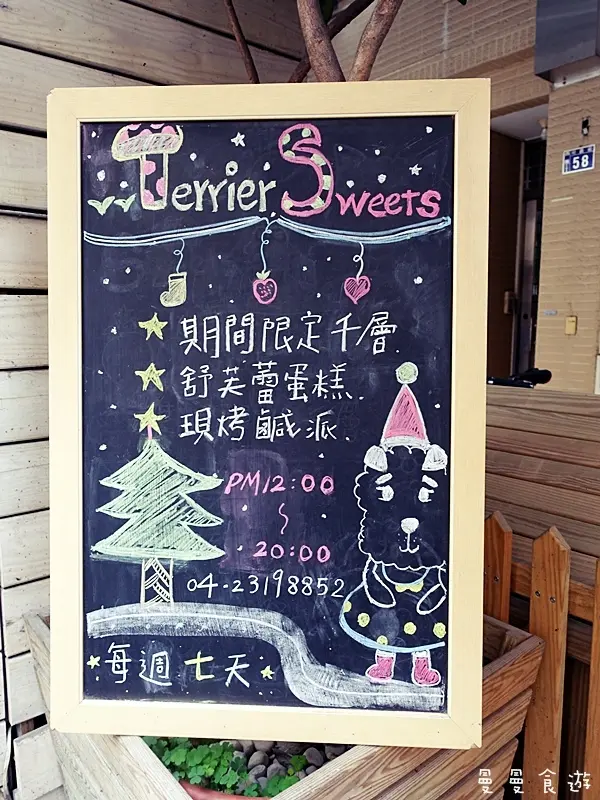 Terrier Sweets
58
期間限定千層.
舒芙蕾蛋糕.
現烤鹹派.
PM12:00
~
20:00
04-23198852
每週七天
曼曼食遊